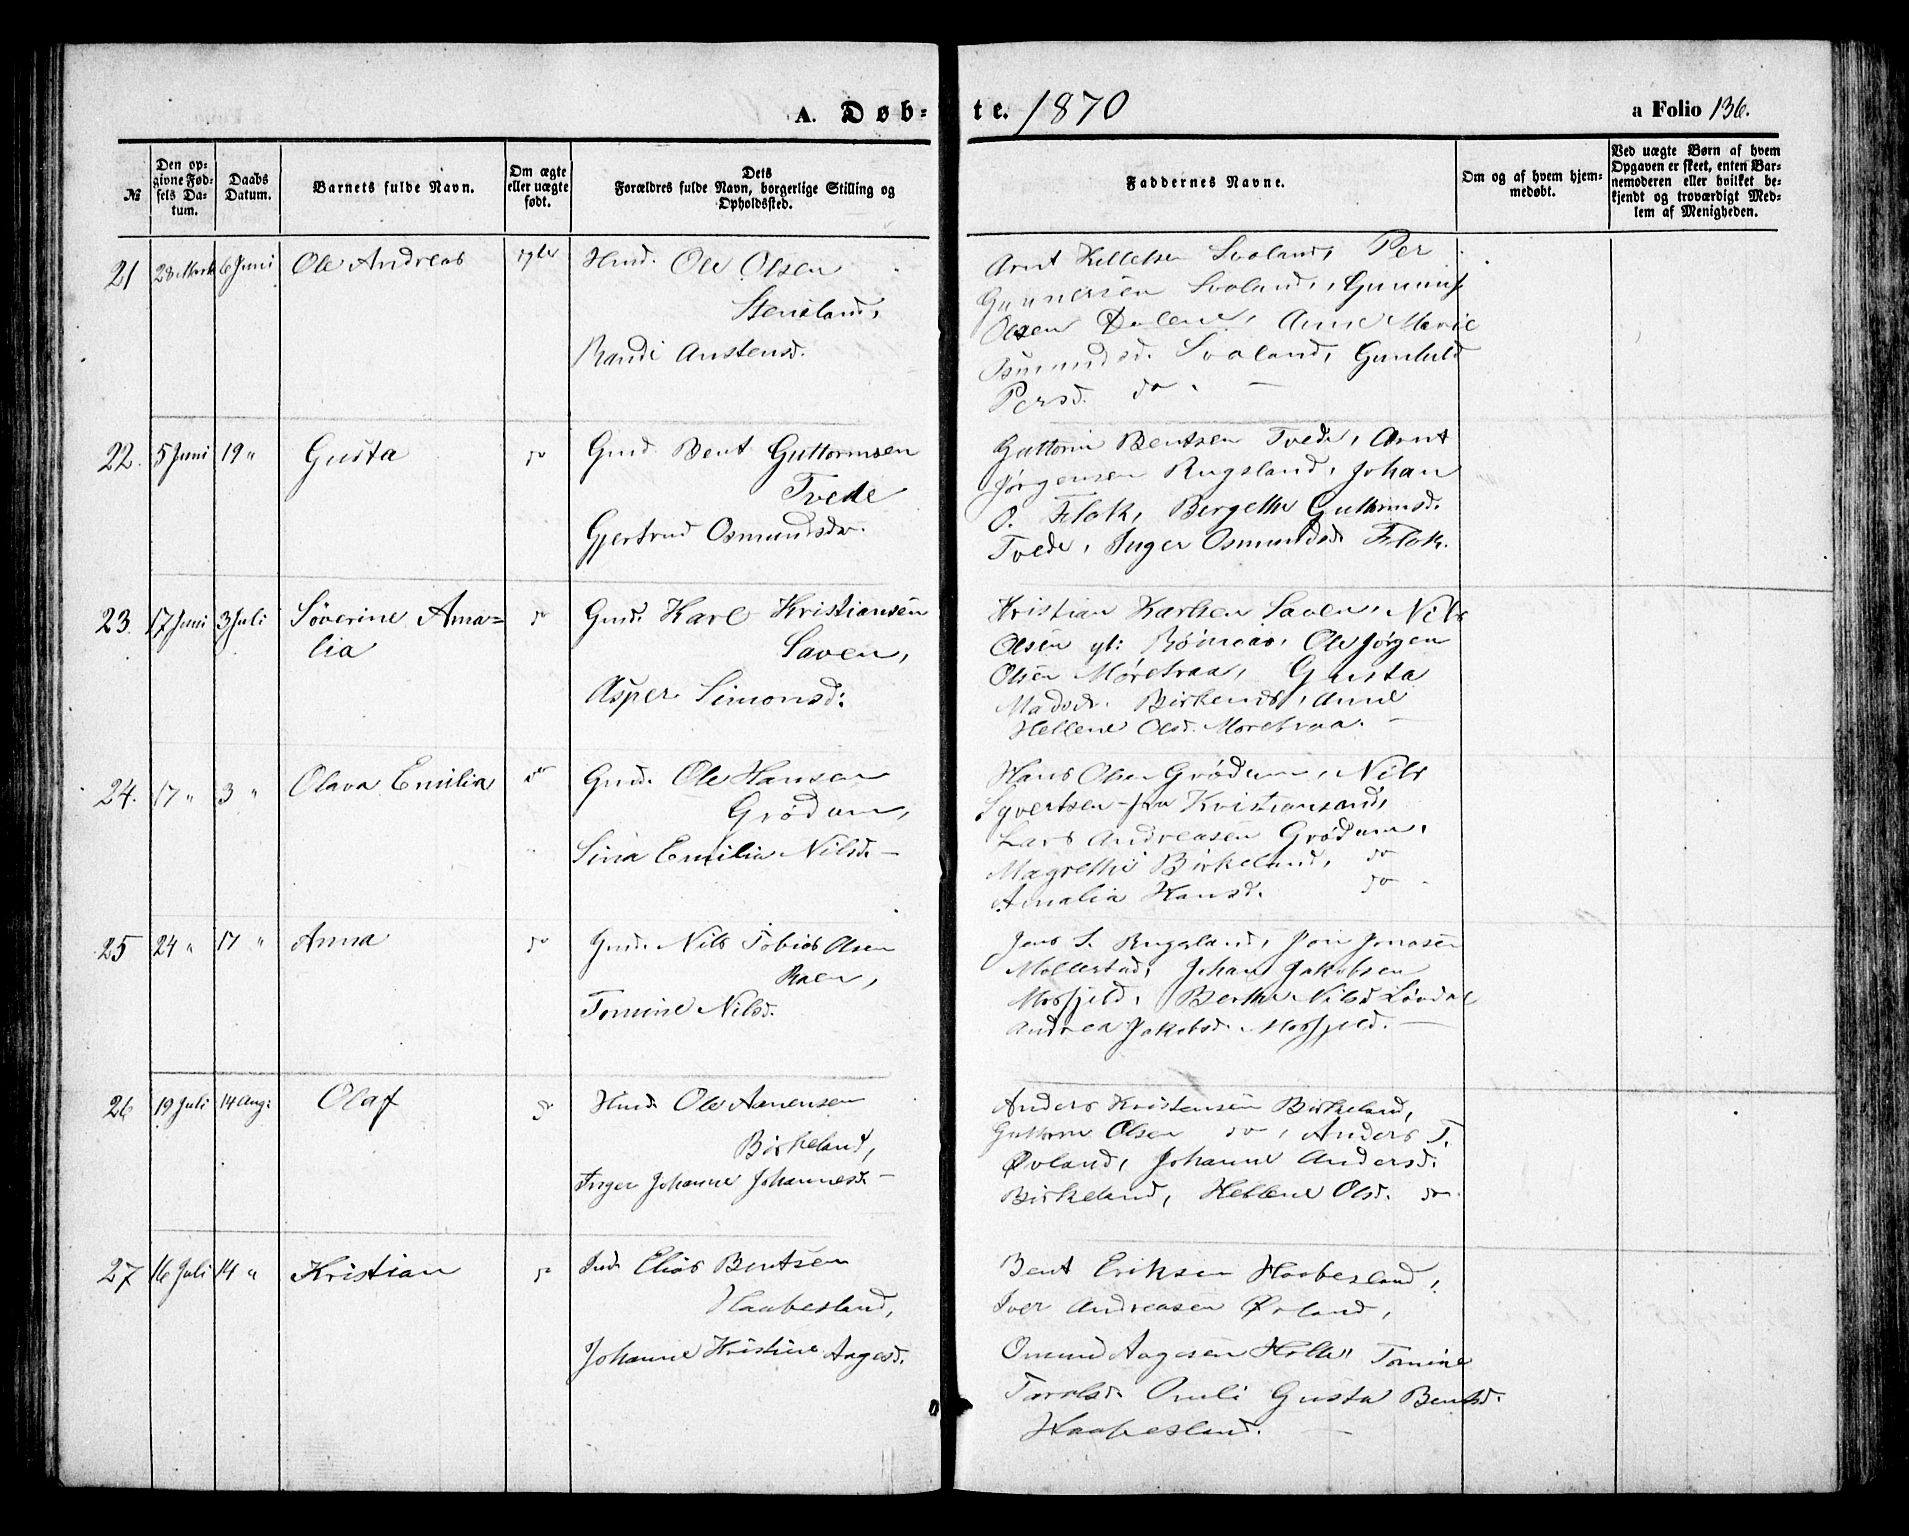 A. Døb-te. 1870
a Folio 136.
№
Den op-
givne Fød-
sels Da-
tum.
Daabs
Datum.
Barnets fulde Navn.
Om ægte
eller uægte
født.
Dets
Forældres fulde Navn, borgerlige Stilling og
Opholdssted.
Faddernes Navne.
Om og af hvem hjem-
medøbt.
Ved uægte Børn af hvem
Opgaven er skeet, enten Bar-
nemoderen eller hvilket be-
kjendt og troværdigt Med-
lem af Menigheden.
21 28 Marts 6 Juni Ole Andreas
Husd. Ole Olsen
Stensland,
Randi Austensd.
Arnt Kelletsen Svaland, Per
Gunnersen Svaland,
Olsen Dalene, Anne Marie
Svaland, Gunhild
Persd. do. —
22. 5 Juni 19 " Gusta do
Gmd. Bent Guttormsen
Tvede
Gjertrud Osmundsdr.
Guttorm Bentsen Tvede, Arnt
Jørgensen Rugsland, Johan
O. Flak, Bergethe Guttormsd.
Tvede, Inger Osmundsd. Flak.
23. 17 Juni 3 Juli Søverine Ama= do
lia
Gmd. Karl Kristiansen
Saven,
Asper Simonsd:
Kristian Karlsen Saven, Nils
Olsen yt: Ole Jørgen
Olsen Møretraa, Gusta
Madsdr. Birkenes, Anne
Hellene Olsd. Møretraa. —
24. 17 " 3 " Olava Emilia do
Gmd. Ole Hansen
Grødum,
Sina Emilia Nilsd. —
Hans Olsen Grødum, Nils
Syvertsen fra Kristiansand,
Lars Andreasen Grødum,
Magrethe Birkeland, do
Amalia Hansd. do
25 24 " 17 " Anna do
Gmd. Nils Tobias Olsen
Raen,
Tomine Nilsd.
Jens S. Rugsland, Jon Jonasen
Mollestad, Johan Jakobsen
Mosfjeld, Berthe Nilsd Løvdal
Andrea Jakobsd. Mosfjeld. —
26 19 Juli 14 Aug: Olaf do
Husd. Ole Aanensen
Birkeland,
Inger Johanne Johannesd. —
Anders Kristensen Birkeland,
Guttorm Olsen do, Anders T.
Øvland, Johanne Andersd.
Birkeland, Hellene Olsd. do.
27 16 Juli 14 " Kristian do
Ind. Elias Bentsen
Haabesland,
Johanne Kristine Aagesd.
Bent Eriksen Haabesland,
Iver Andreasen Øvland,
Omund Aagesen Tomine
Taralsd. Gusta Bentsd.
Haabesland. —